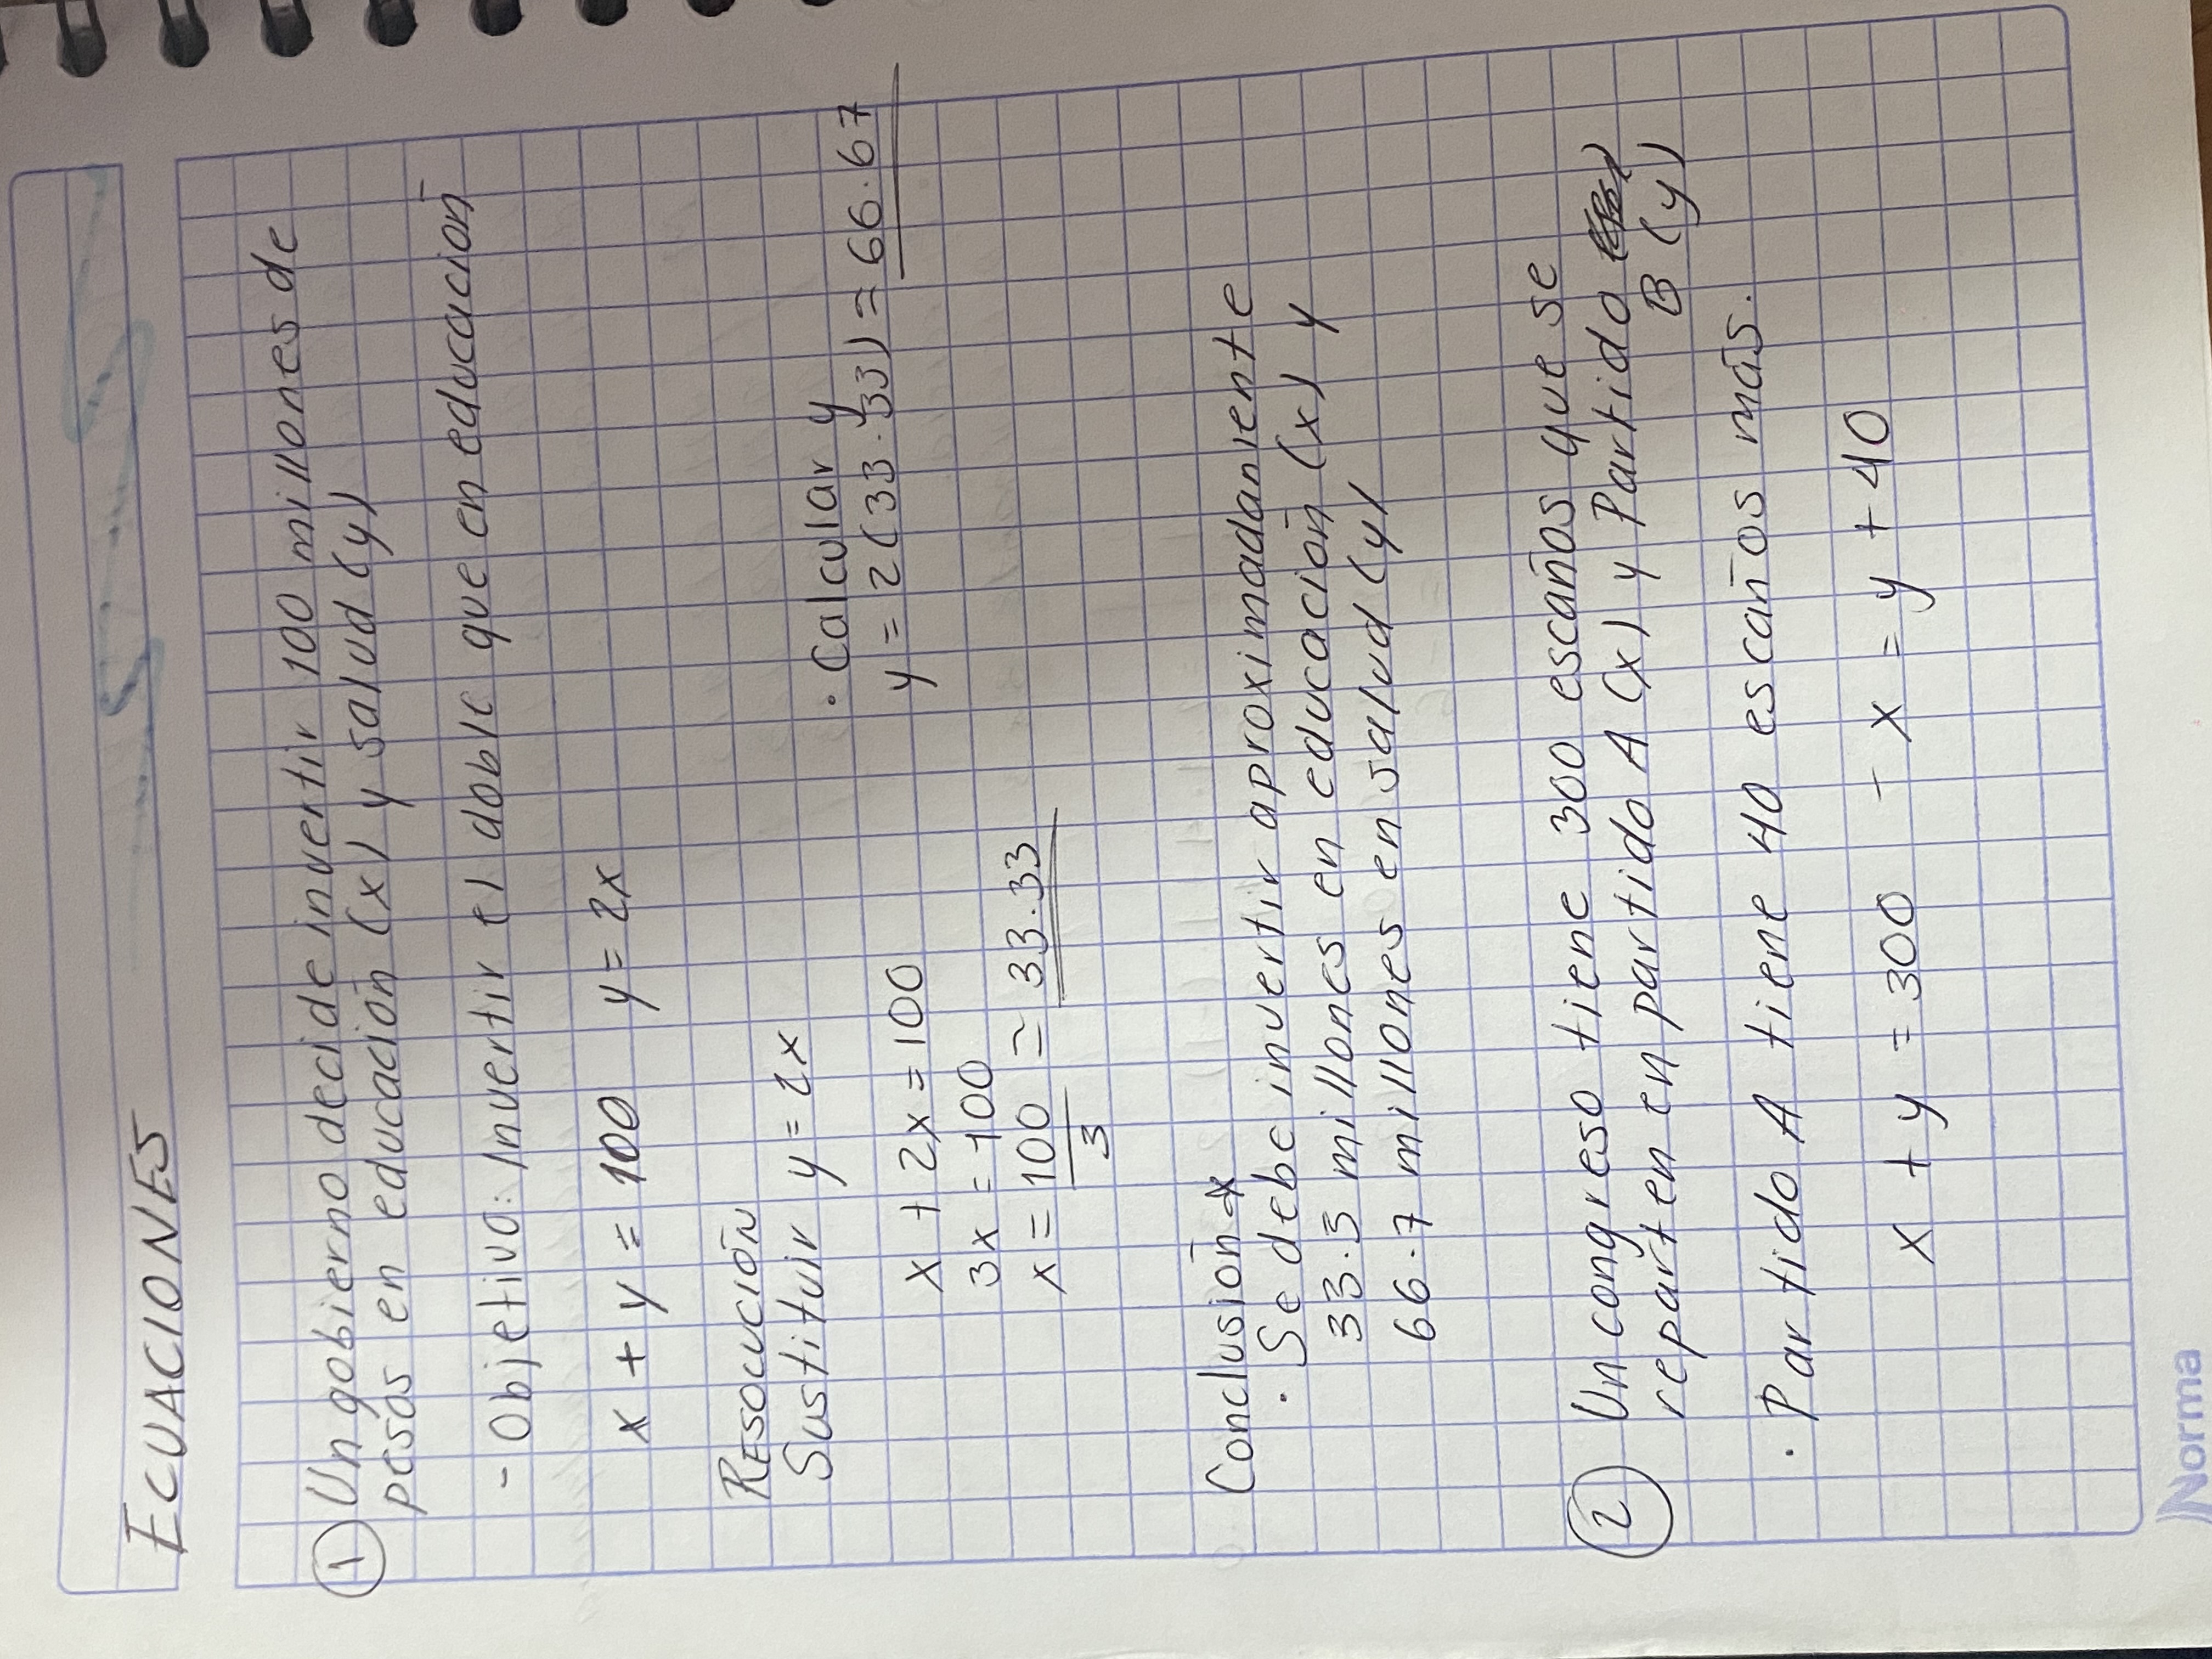 ECUACIONES
① Un gobierno decide invertir 100 millones de
pesos en educación (x) y salud (y)
- Objetivo: Invertir el doble que en educación
x + y = 100 y = 2x
RESOLUCIÓN
Sustituir y = 2x
x + 2x = 100
3x = 100
x = 100/3 = 33.33
• Calcular y
y = 2(33.33) = 66.67
Conclusión
• Se debe invertir aproximadamente
33.3 millones en educación (x) y
66.7 millones en salud (y)
② Un congreso tiene 300 escaños que se
reparten en partido A (x) y Partido
B (y)
• Partido A tiene 40 escaños más.
x + y = 300 - x = y + 40
Norma